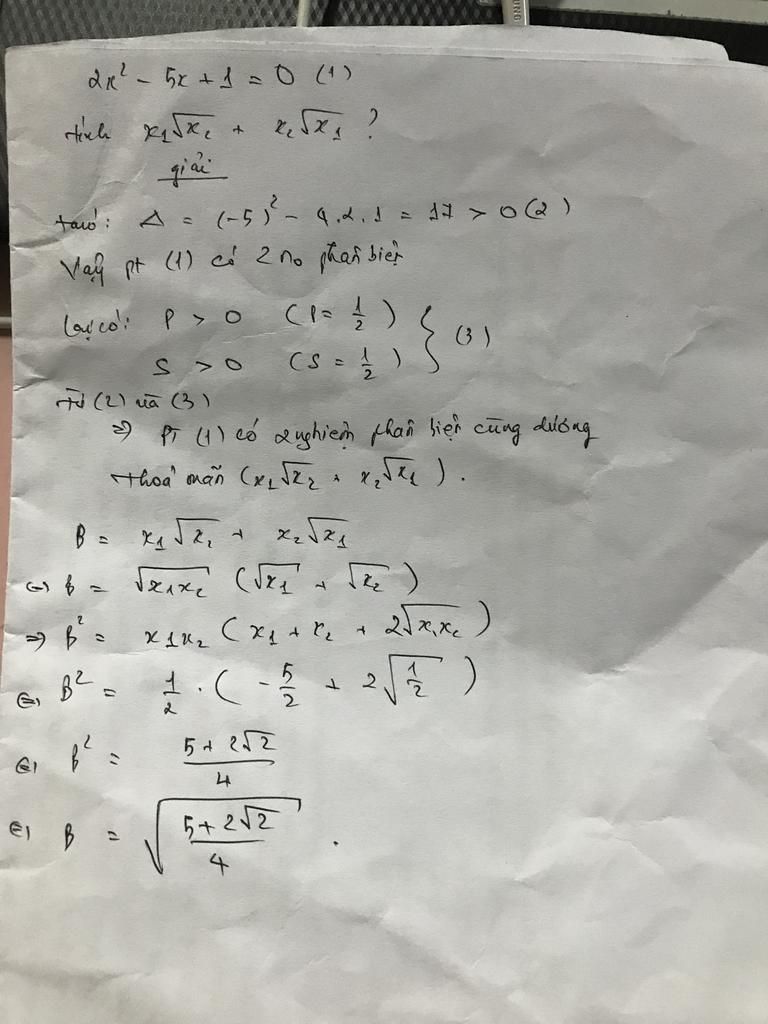 2x² - 5x + 1 = 0 (1)
tính x₁√x₂ + x₂√x₁ ?
giải
ta có: Δ = (-5)² - 4.2.1 = 17 > 0 (2)
Vậy pt (1) có 2 no phân biệt
Lại có: P > 0 (P = 1/2) } (3)
S > 0 (S = 1/2)
Từ (2) và (3)
⇒ PT (1) có 2 nghiệm phân biệt cùng dương
thoả mãn (x₁√x₂ + x₂√x₁).
B = x₁√x₂ + x₂√x₁
⇔ B = √x₁x₂ (√x₁ + √x₂)
⇒ B² = x₁x₂ (x₁ + x₂ + 2√x₁x₂)
⇔ B² = 1/2 . (-5/2 + 2√1/2)
⇔ B² = (5 + 2√2)/4
⇔ B = √((5 + 2√2)/4) .